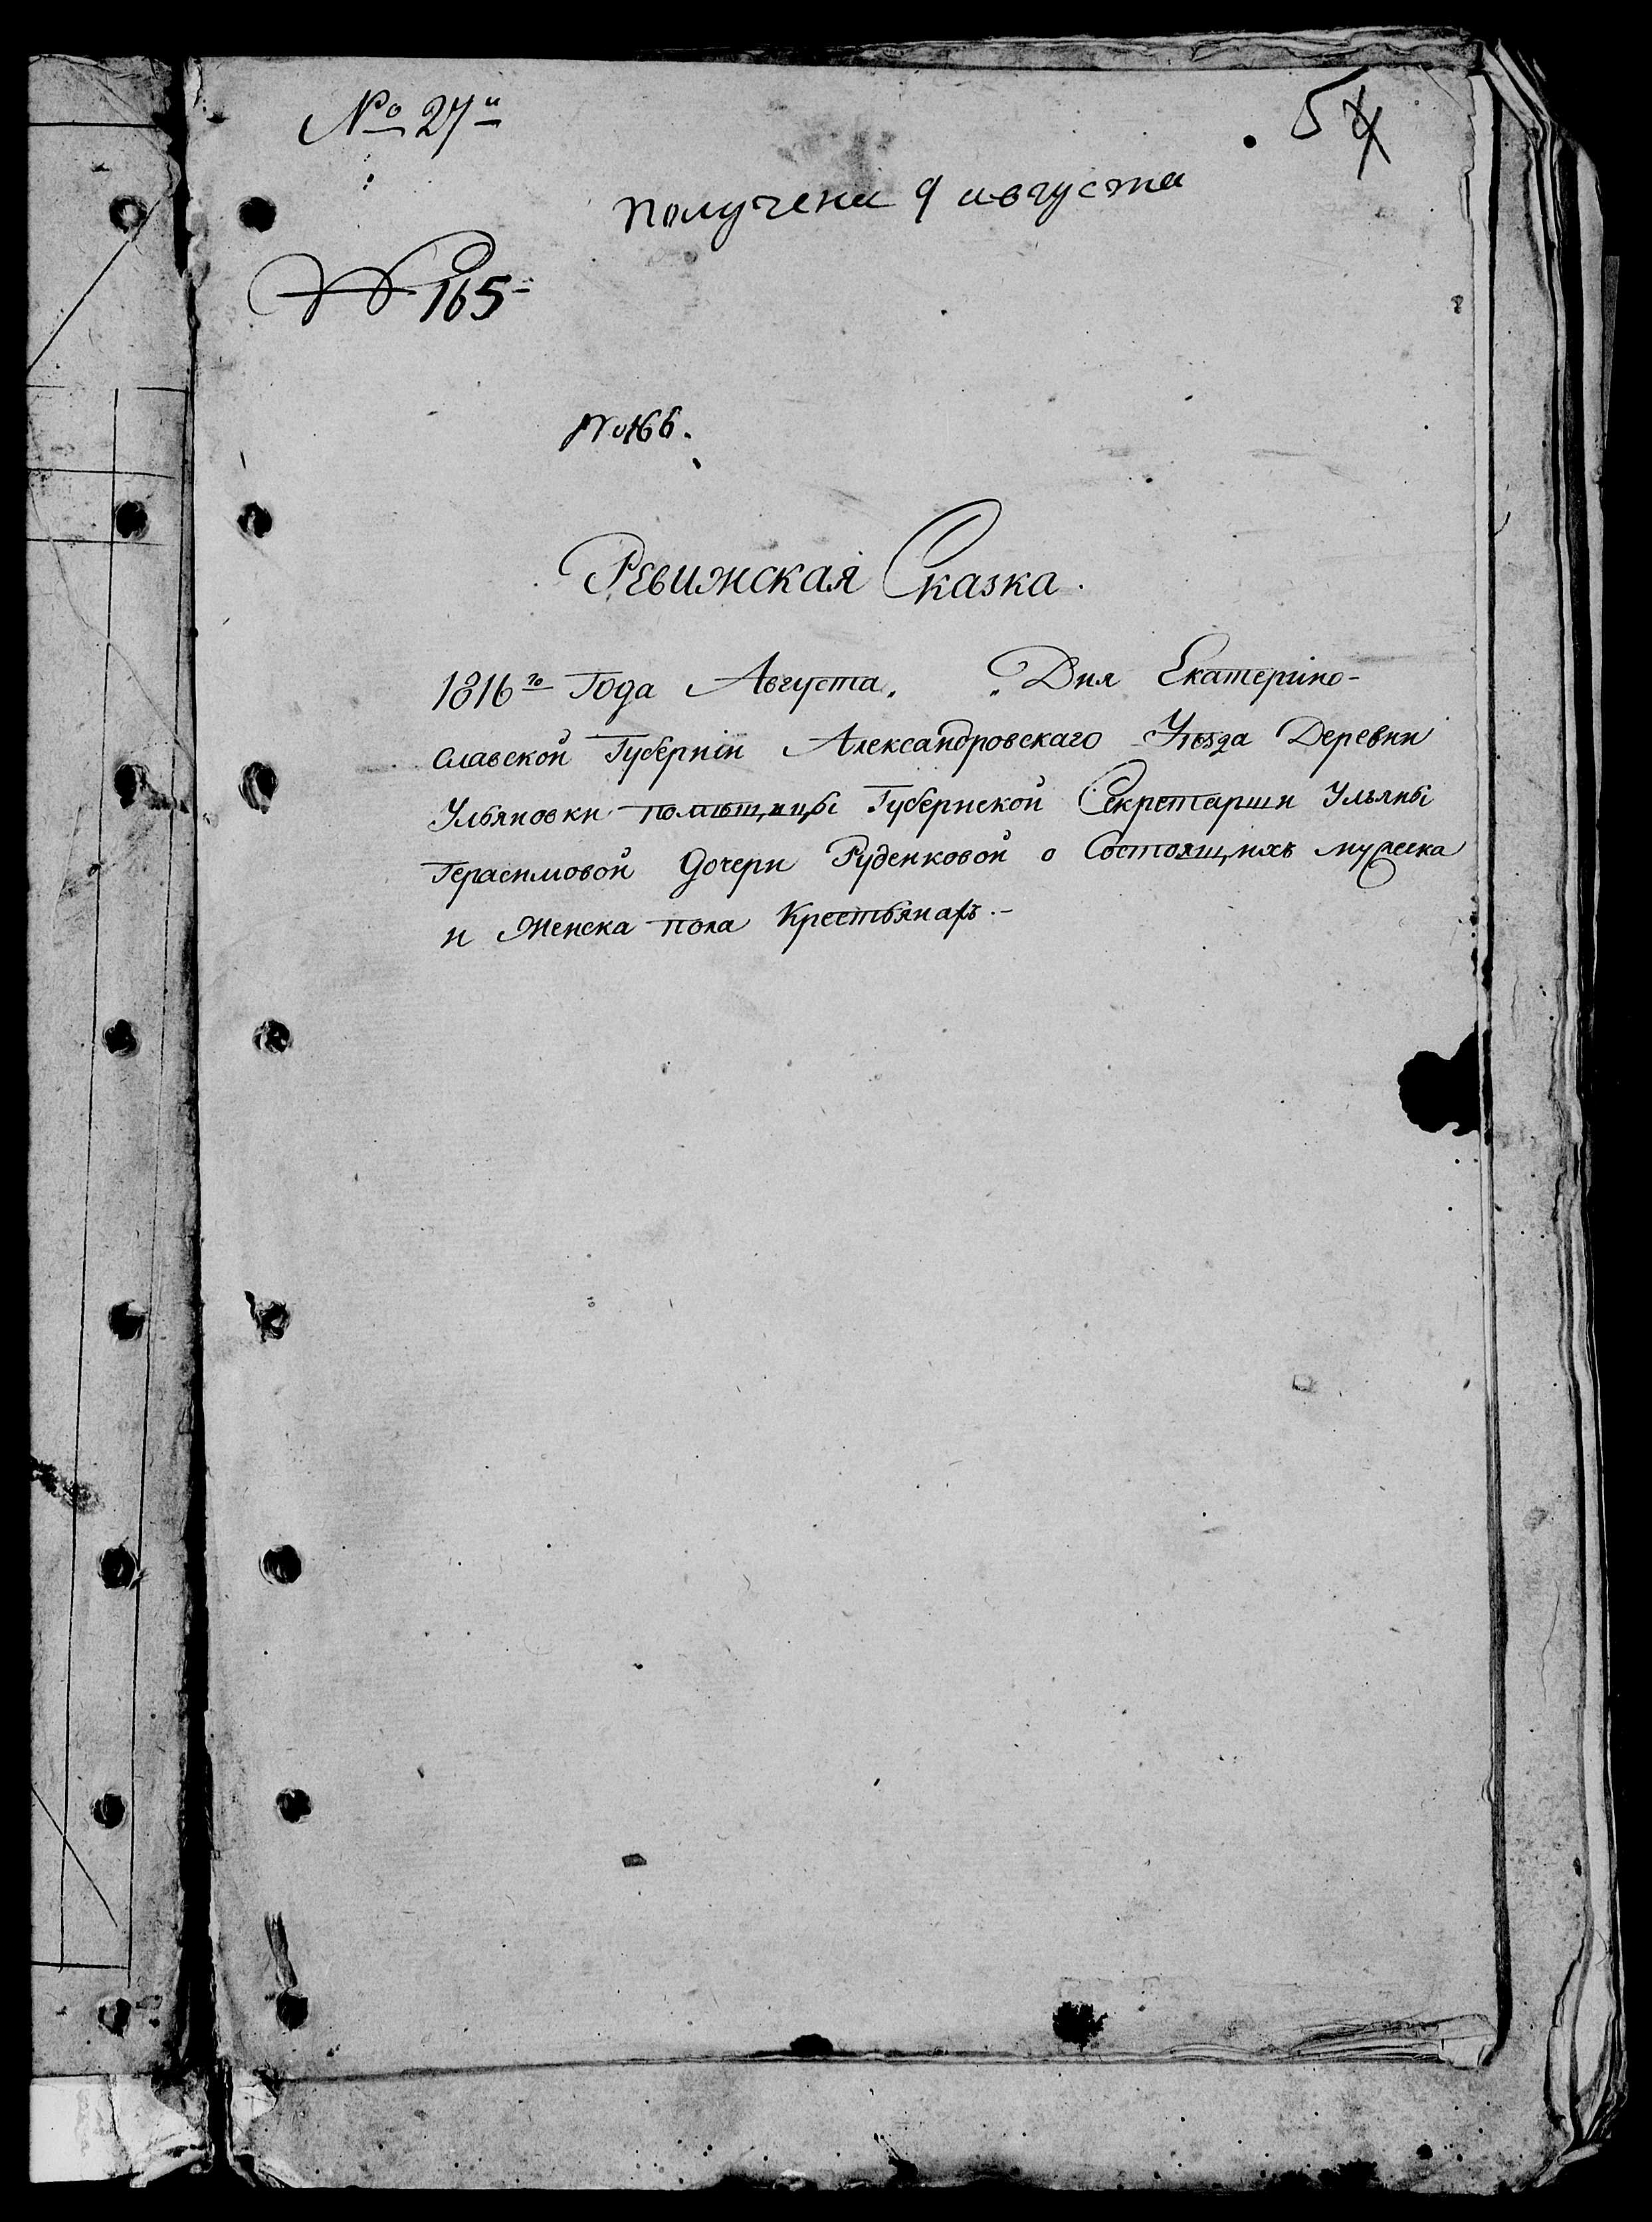 № 27й
5
получена 9 августа
№ 165
№ 166.
Ревижская Сказка.
1816го Года Августа „ „ Дня Екатерино-
славской Губерніи Александровскаго Уѣзда Деревни
Ульяновки помѣщицы Губернской Секретарши Ульяны
Герасимовой дочери Руденковой о Состоящихъ мужеска
и Женска пола Крестьянахъ.-